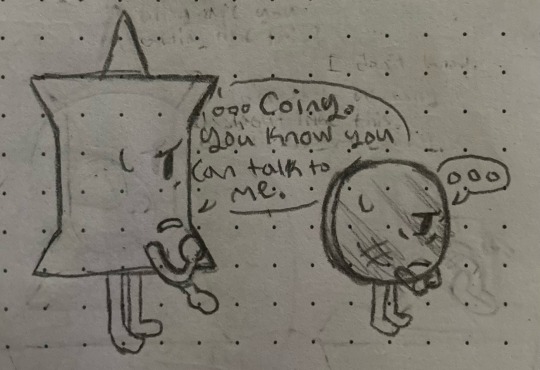 ,ooo Coiny.
You know you
can talk to
me.
ooo